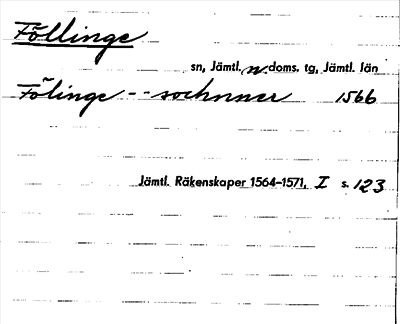 Föllinge
sn, Jämtl. n. doms. tg, Jämtl. län
Fölinge -- sochnner 1566
Jämtl. Räkenskaper 1564-1571, I s. 123